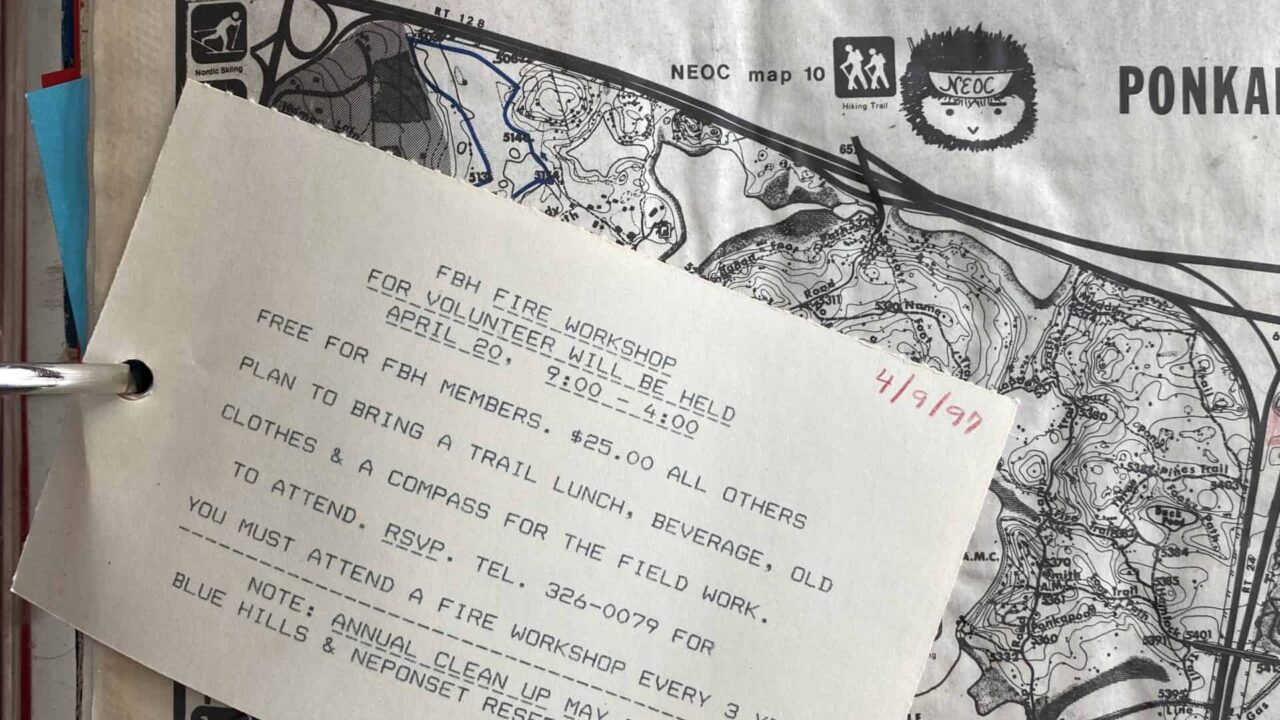 RT 128
Nordic Skiing
NEOC map 10
Hiking Trail
NEOC
PONKA
5140
5311
5380
Pines Trail
5384
A.M.C.
5370
Trail
5360
5391
5401
5395
Line
Gas
4/9/97
FBH FIRE WORKSHOP
FOR VOLUNTEER WILL BE HELD
APRIL 20, 9:00 - 4:00
FREE FOR FBH MEMBERS. $25.00 ALL OTHERS
PLAN TO BRING A TRAIL LUNCH, BEVERAGE, OLD
CLOTHES & A COMPASS FOR THE FIELD WORK.
TO ATTEND. RSVP. TEL. 326-0079 FOR
YOU MUST ATTEND A FIRE WORKSHOP EVERY 3
NOTE: ANNUAL CLEAN UP MAY
BLUE HILLS & NEPONSET RESE